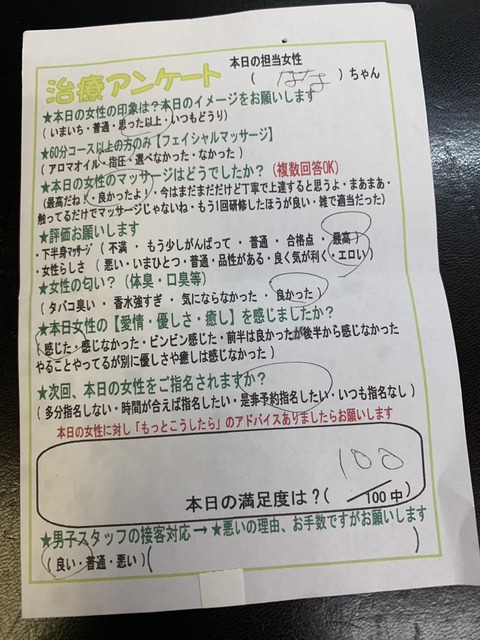 治療アンケート
本日の担当女性
( はな )ちゃん
★本日の女性の印象は?本日のイメージをお願いします
(いまいち・普通・思った以上・いつもどうり)
★60分コース以上の方のみ【フェイシャルマッサージ】
( アロマオイル・指圧・選べなかった・なかった )
★本日の女性のマッサージはどうでしたか?(複数回答OK)
(最高だね!・良かったよ)・今はまだまだだけど丁寧で上達すると思うよ・まあまあ・
触ってるだけでマッサージじゃないね・もう1回研修したほうが良い・雑で適当だった)
★評価お願いします
・下半身マッサージ ( 不満 ・ もう少しがんばって ・ 普通 ・ 合格点 ・ 最高 )
・女性らしさ ( 悪い・いまひとつ・普通・品性がある・良く気が利く・エロい )
★女性の匂い? (体臭・口臭等)
( タバコ臭い ・ 香水強すぎ ・ 気にならなかった ・ 良かった )
★本日女性の【愛情・優しさ・癒し】を感じましたか?
( 感じた・感じなかった・ビンビン感じた・前半は良かったが後半から感じなかった
やることやってるが別に優しさや癒しは感じなかった )
★次回、本日の女性をご指名されますか?
( 多分指名しない・時間が合えば指名したい・是非予約指名したい・いつも指名なし )
本日の女性に対し「もっとこうしたら」のアドバイスありましたらお願いします
100
本日の満足度は?( /100中 )
★男子スタッフの接客対応 → ★悪いの理由、お手数ですがお願いします
( 良い・普通・悪い ) ( )